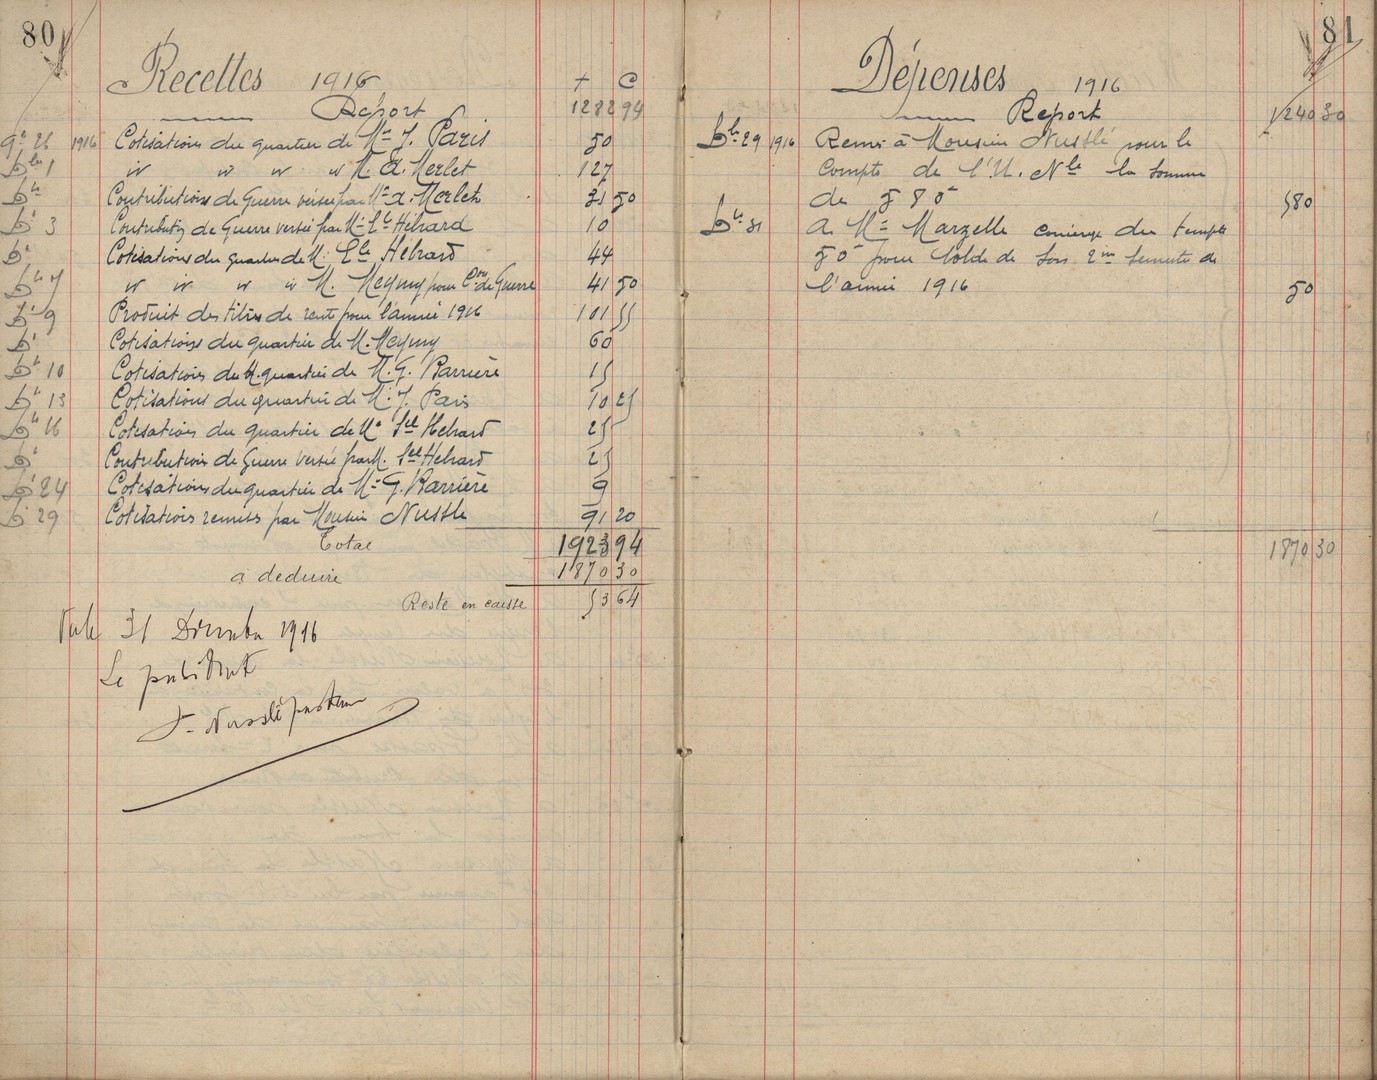 80
Recettes 1916 f c
Report 1282 94
9b 26 1916 Cotisations du quartier de Mr J. Paris 50
Dbre 1 " " " " M. A. Merlet 127
Db Contributions de Guerre versées par Mr A. Merlet 31 50
Dr 3 Contribution de Guerre versée par Mr Sl Hébrard 10
Dr Cotisations du quartier de M. Hébrard 44
7 " " " " M. Meyny pour Con de Guerre 41 50
Dr 9 Produit des titres de rente pour l'année 1916 101 55
Dr Cotisations du quartier de M. Meyny 60
Dr 10 Cotisations du quartier de M. G. Barrière 15
Dr 13 Cotisations du quartier de M. J. Paris 10 25
16 Cotisations du quartier de Mr Hébrard 25
Dr Contribution de Guerre versée par M. Hébrard 25
Dr 24 Cotisations du quartier de Mr G. Barrière 9
Dr 29 Cotisations remises par Monsieur Nusslé 91 20
Total 1923 94
a deduire 1870 30
Reste en caisse 53 64
Vu le 31 Décembre 1916
Le président
Nusslé pasteur
81
Dépenses 1916
Report 1240 30
Dbr 29 1916 Remis à Monsieur Nusslé pour le
compte de l'U. Nle la somme
de 580 580
Dbr 31 A Mr Marzelle concierge du temple
50 pour solde de son 2me semestre de
l'année 1916 50
1870 30